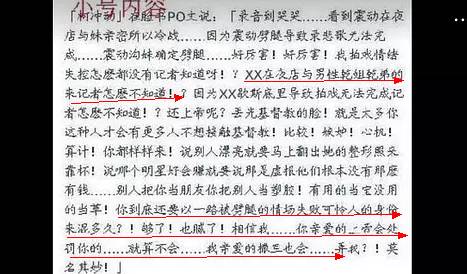 小号内容
「柯冲动」在脸书PO文说：「录音到哭哭……看到震动在夜
店与妹亲密所以冷战……因为震动劈腿导致录悲歌无法完
成……震动沟妹确定劈腿……好厉害！好厉害！我拍戏情绪
失控怎麽都没有记者知道呀！？XX在夜店与男性乾姐兄弟的
来记者怎麽不知道！？因为XX歇斯底里导致拍戏无法完成记
者怎麽不知道！？还上帝呢？丢光基督教的脸！就是太多你
这种人才会有更多人不想接触基督教！比较！嫉妒！心机！
算计！你都样样来！说别人漂亮就要马上翻出她的整形照来
靠杯！说哪个明星好会赚就要说那是虚报他们根本没有那麽
有钱……别人把你当朋友你把别人当塑胶！有用的当宝没用
的当草！你到底还要以一路被劈腿的情场失败可怜人的身份
来混多久？！够了！也腻了！相信我……你亲爱的上帝会处
罚你的……就算不会……我亲爱的撒三也会……弄我？！莫
名其妙！」